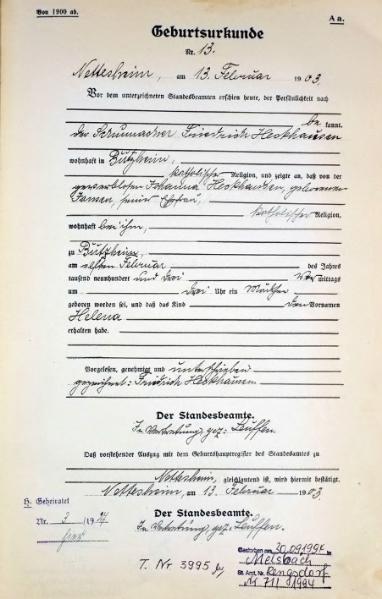 Von 1900 ab.
A a.
Geburtsurkunde
Nr. 13.
Nettesheim, am 13. Februar 1903.
Vor dem unterzeichneten Standesbeamten erschien heute, der Persönlichkeit nach
be kannt,
der Friedrich Heckhausen
wohnhaft in Butzheim,
katholischer Religion, und zeigte an, daß von der
gewerblosen Johanna Heckhausen, geborenen
seiner Ehefrau,
katholischer Religion,
wohnhaft bei ihm,
zu Butzheim,
am elften Februar des Jahres
tausend neunhundert und drei Vor mittags
um drei Uhr ein Mädchen
geboren worden sei, und daß das Kind den Vornamen
Helena
erhalten habe.
Vorgelesen, genehmigt und unterschrieben
gezeichnet: Friedrich Heckhausen
Der Standesbeamte.
In Vertretung, gez:
Daß vorstehender Auszug mit dem Geburtshauptregister des Standesamts zu
Nettesheim, gleichlautend ist, wird hiermit bestätigt.
Nettesheim, am 13. Februar 1903
Der Standesbeamte.
In Vertretung, gez:
H. Geheiratet
Nr. 3 / 19
T. Nr 3995
Gestorben am 30.09.1994
Melsbach
St. Amt. Nr. Rengsdorf
Nr. 711 / 1994